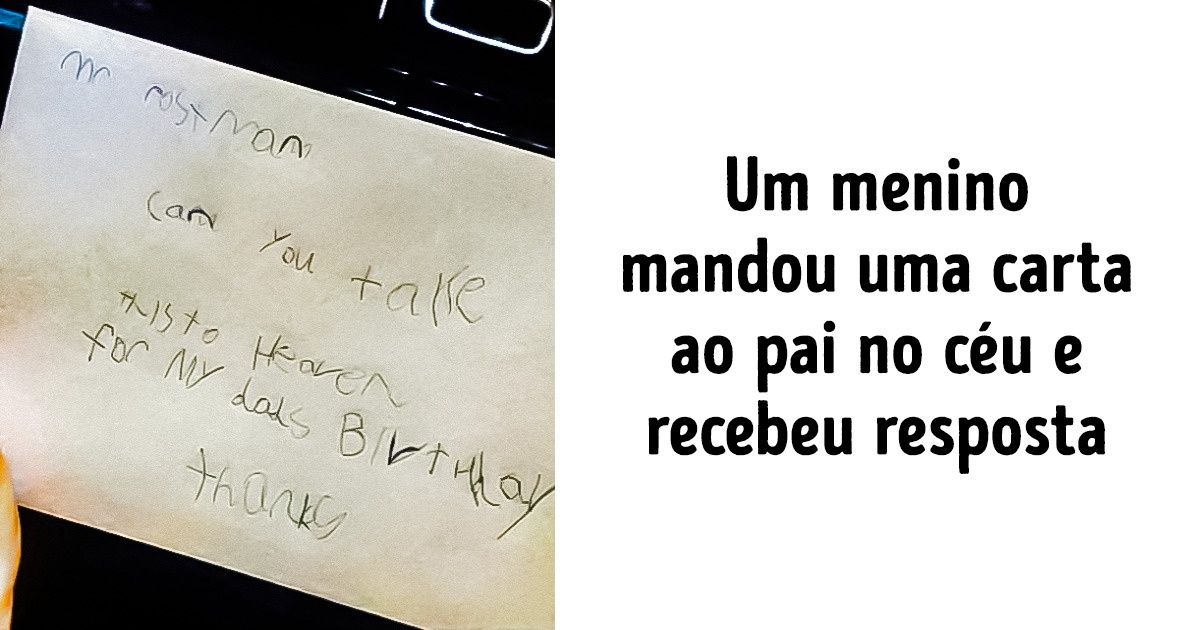 Mr Postman
Can you take
this to Heaven
for My dads Birthday
thanks
Um menino
mandou uma carta
ao pai no céu e
recebeu resposta